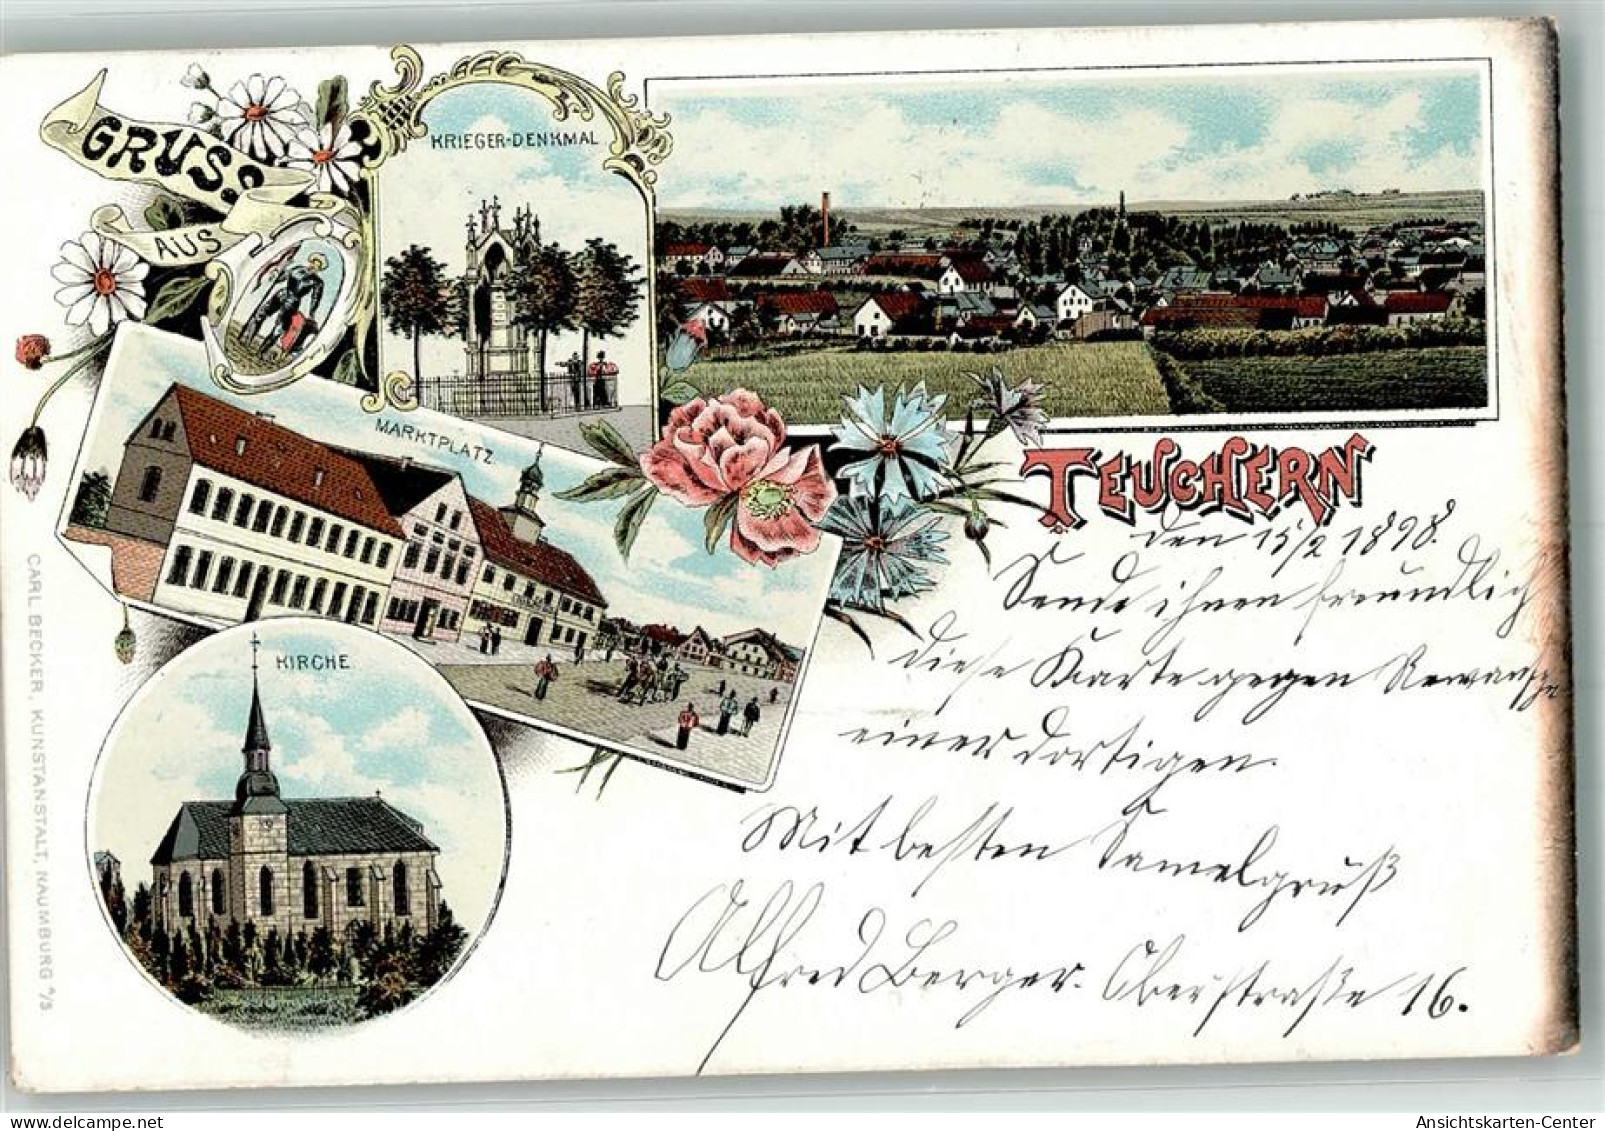 GRUSS
AUS
KRIEGER-DENKMAL
MARKTPLATZ
KIRCHE
TEUCHERN
den 15/2 1898.
Sende ihnen freundlich
diese Karte gegen Revansche
einer dortigen.
Mit besten Samelgruß
Alfred Berger. Oberstraße 16.
CARL BECKER, KUNSTANSTALT, NAUMBURG a/S
Ansichtskarten-Center